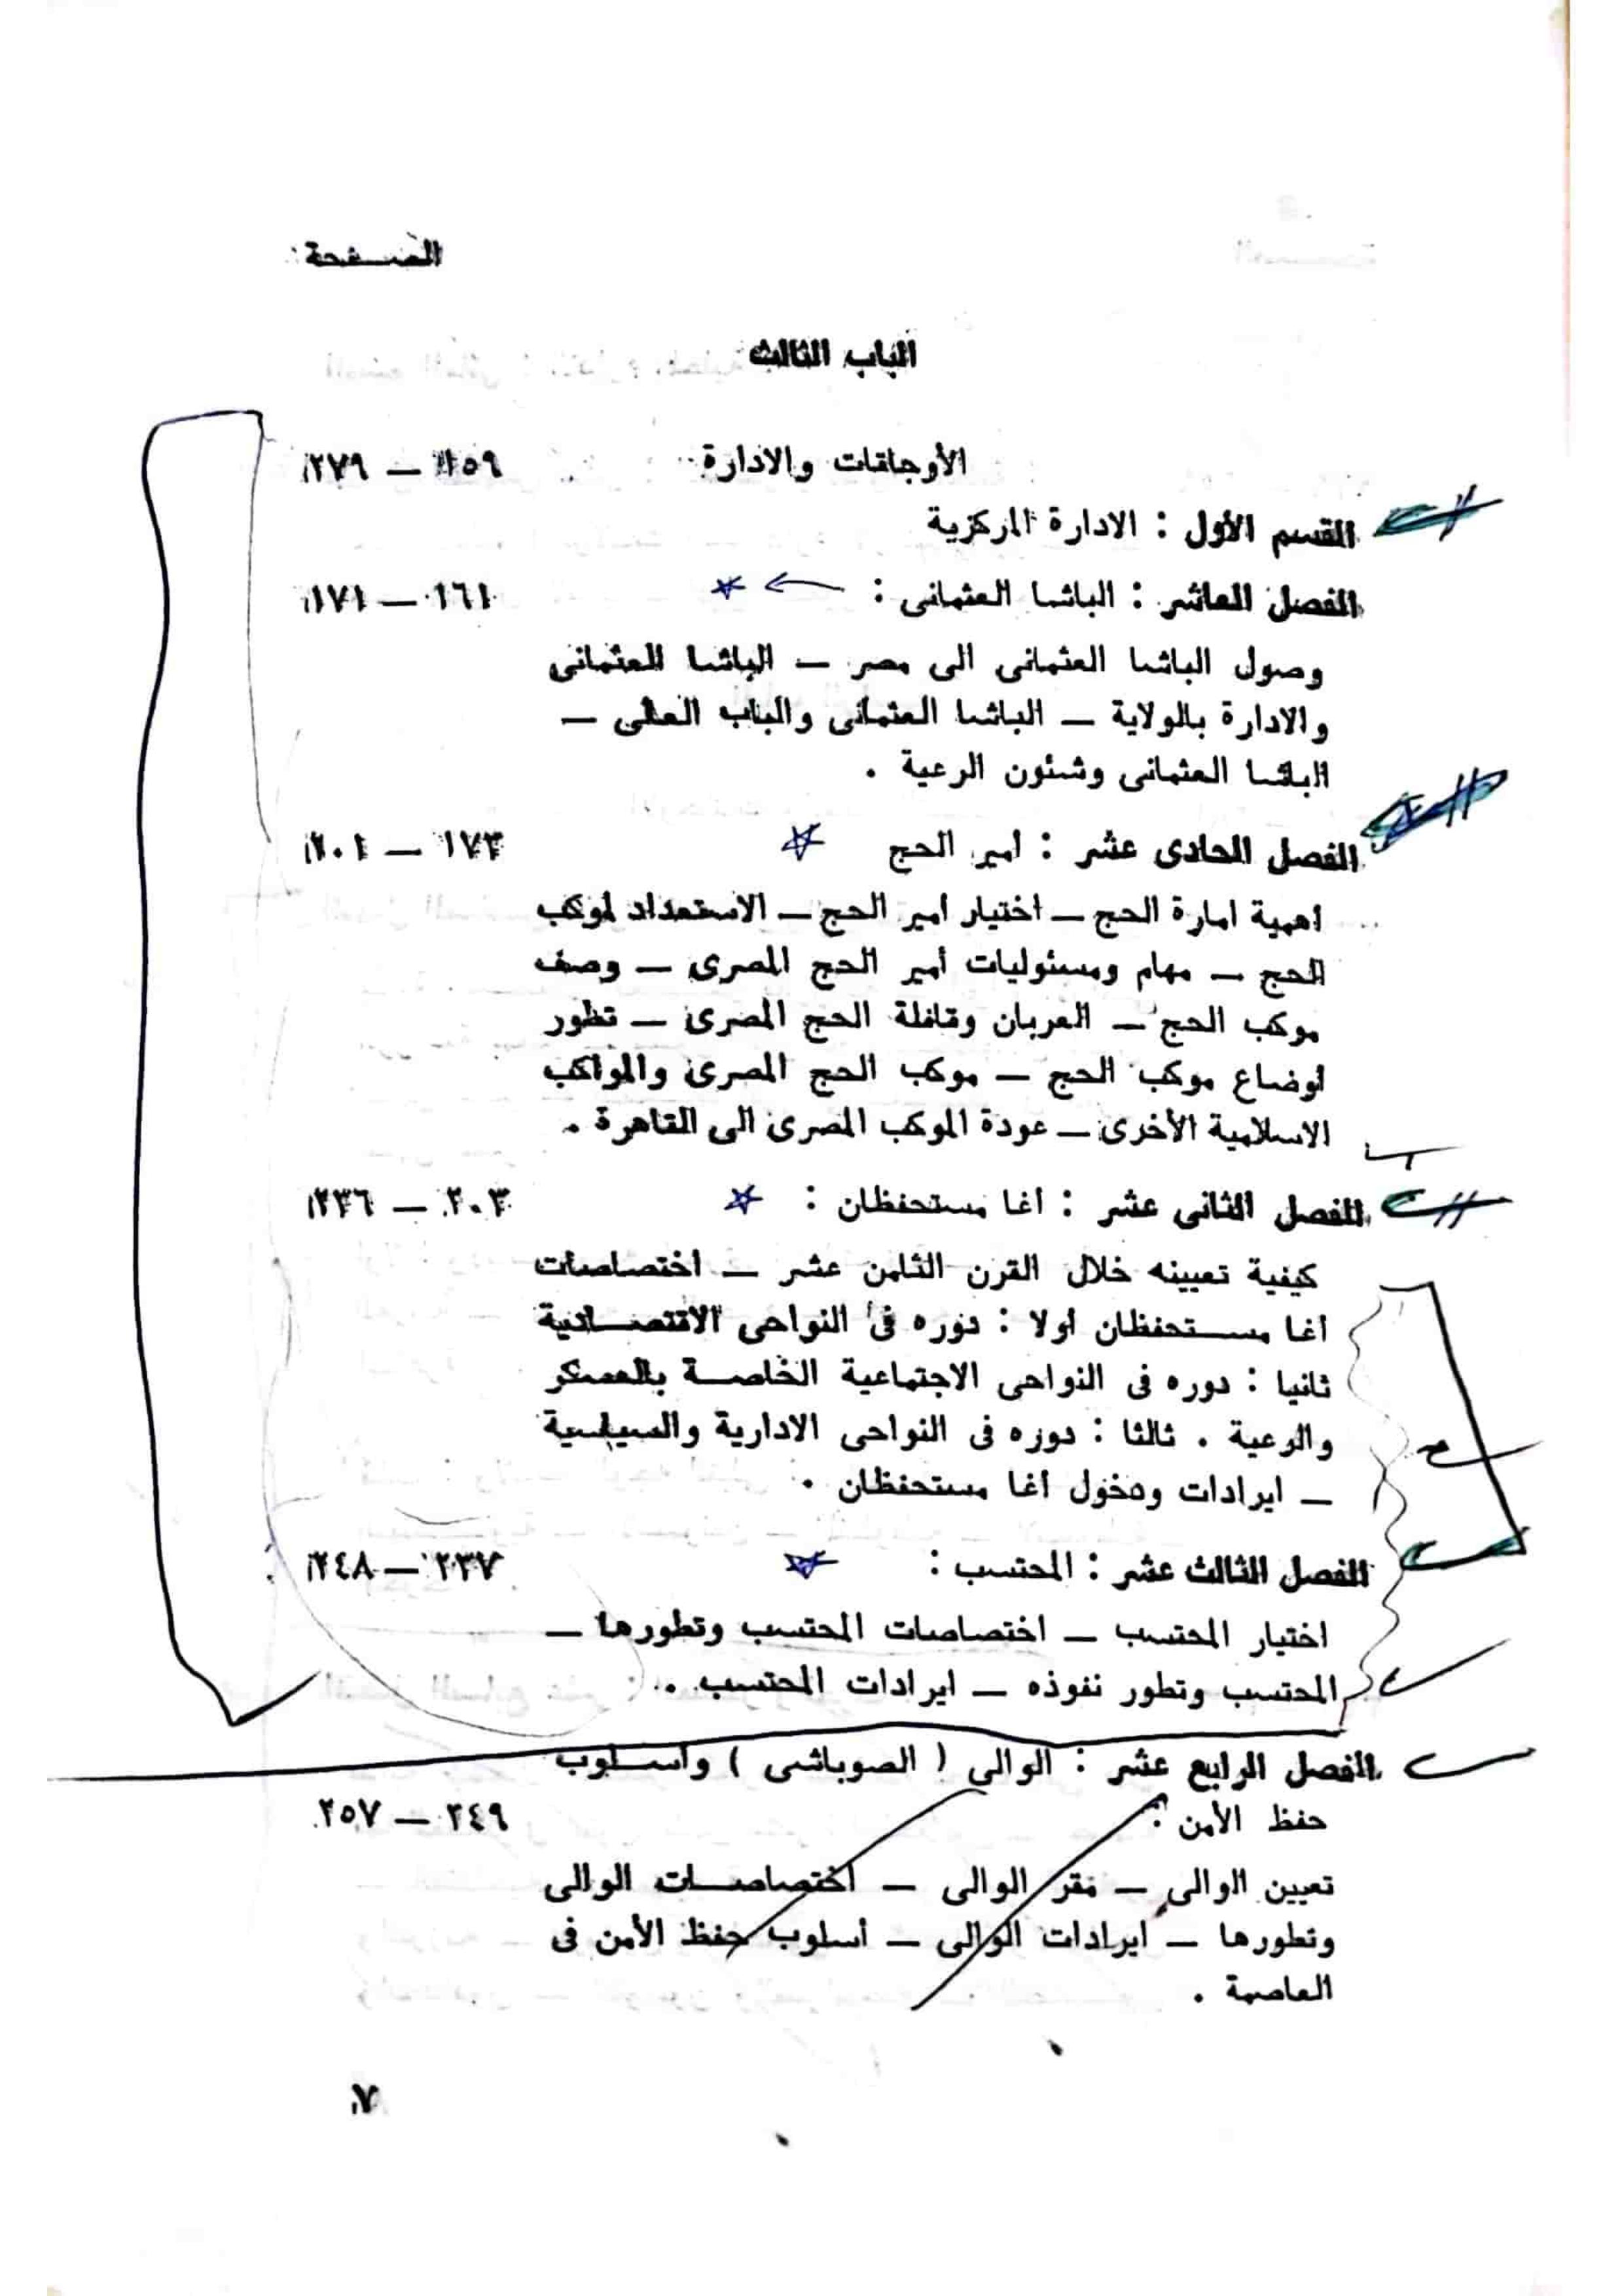 الصفحة
الباب الثالث
الأوجاقات والادارة ١٥٩ — ٢٧٩
القسم الأول : الادارة المركزية
الفصل العاشر : الباشا العثمانى : ١٦١ — ١٧١
وصول الباشا العثمانى الى مصر — الباشا العثمانى
والادارة بالولاية — الباشا العثمانى والباب العالى —
الباشا العثمانى وشئون الرعية .
الفصل الحادى عشر : أمير الحج ١٧٣ — ٢٠١
أهمية امارة الحج — اختيار أمير الحج — الاستعداد لموكب
الحج — مهام ومسئوليات أمير الحج المصرى — وصف
موكب الحج — العربان وقافلة الحج المصرى — تطور
أوضاع موكب الحج — موكب الحج المصرى والمواكب
الاسلامية الأخرى — عودة الموكب المصرى الى القاهرة .
الفصل الثانى عشر : أغا مستحفظان : ٢٠٣ — ٢٣٦
كيفية تعيينه خلال القرن الثامن عشر — اختصاصات
أغا مستحفظان أولا : دوره فى النواحى الاقتصادية
ثانيا : دوره فى النواحى الاجتماعية الخاصة بالعسكر
والرعية . ثالثا : دوره فى النواحى الادارية والسياسية
— ايرادات ودخول أغا مستحفظان .
الفصل الثالث عشر : المحتسب : ٢٣٧ — ٢٤٨
اختيار المحتسب — اختصاصات المحتسب وتطورها —
المحتسب وتطور نفوذه — ايرادات المحتسب .
الفصل الرابع عشر : الوالى ( الصوباشى ) وأسلوب
حفظ الأمن : ٢٤٩ — ٢٥٧
تعيين الوالى — مقر الوالى — اختصاصات الوالى
وتطورها — ايرادات الوالى — أسلوب حفظ الأمن فى
العاصمة .
٧